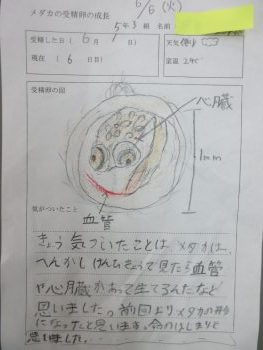 6/6 (火)
メダカの受精卵の成長
5年3組 名前
受精した日(6月 日)
天気
現在(6日目)
室温 24℃
受精卵の図
心臓
1mm
気がついたこと
血管
きょう気づいたことは、メダカは、
へんかしけんびきょうで見たら血管
や心臓があって生てるんだなと
思いました。前回よりメダカの形
になったと思います。命のはじまりと
思いました。